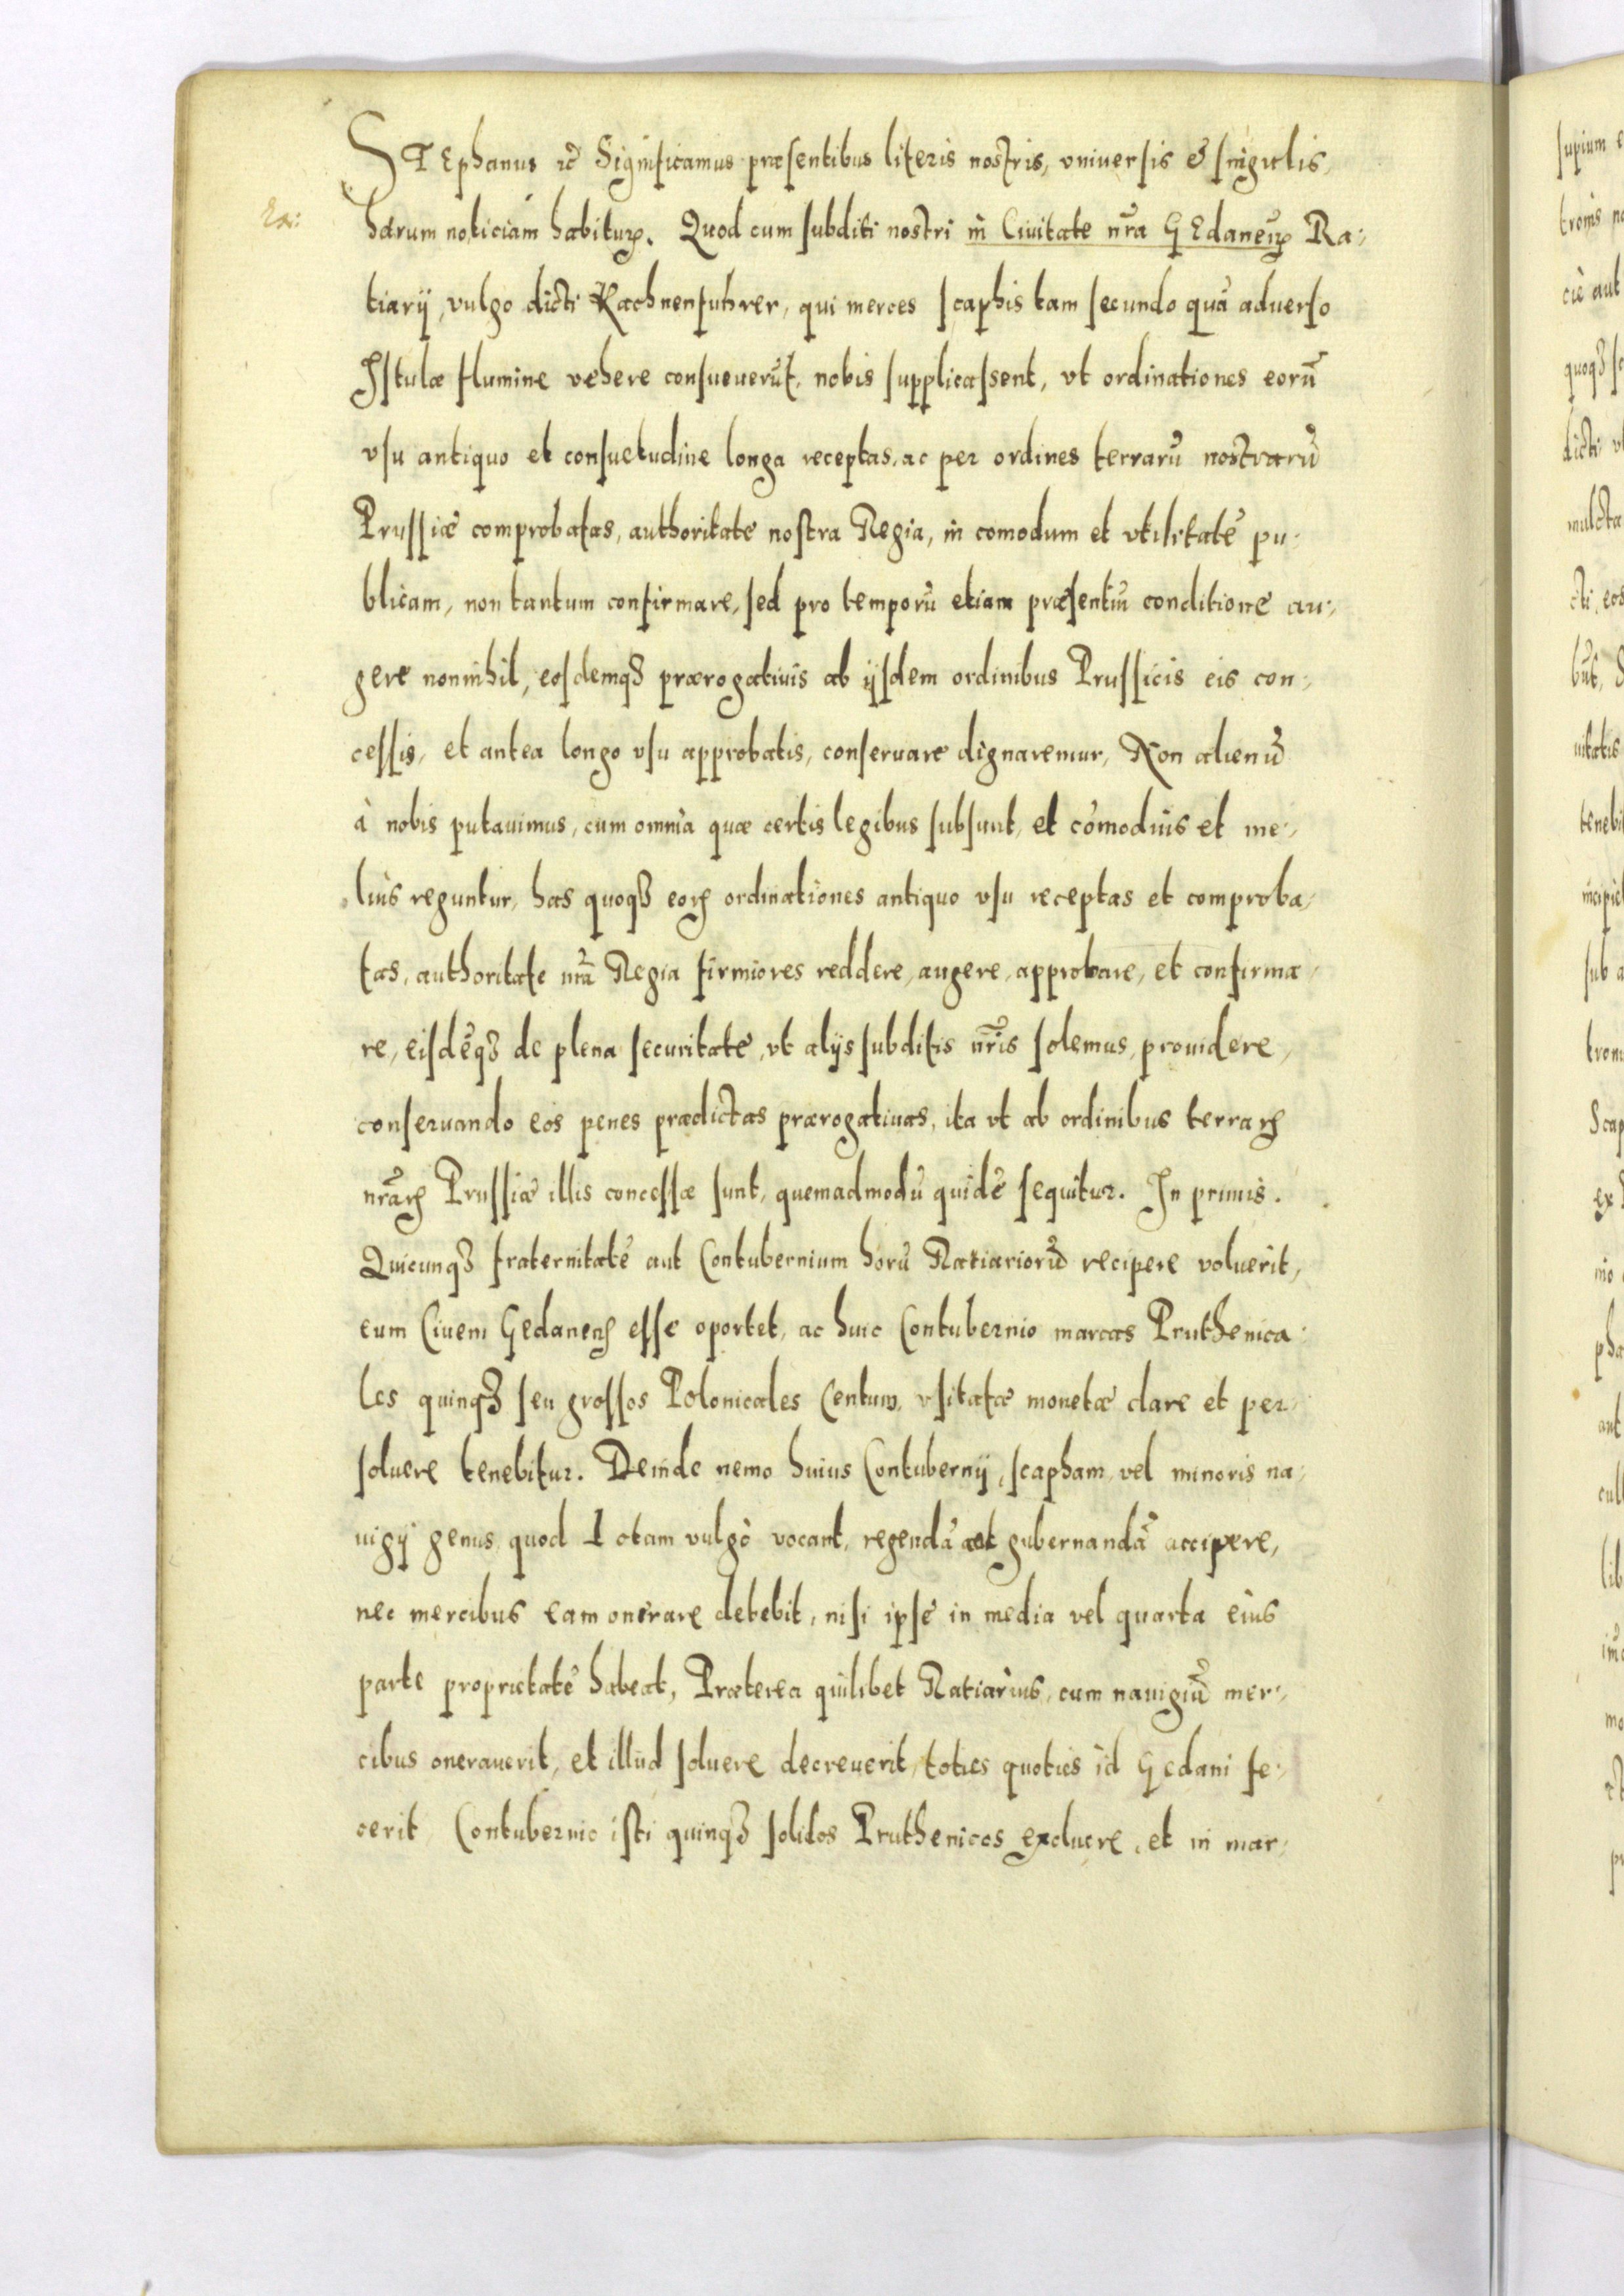 STEphanus etc Significamus præsentibus literis nostris, vniuersis & singulis,
harum noticiam habituꝝ. Quod cum subditi nostri in Ciuitate nr̃a GEdaneñ Ra:
tiarij, vulgo dicti Kachnenfuhrer, qui merces scaphis tam secundo quã aduerso
Istulæ flumine vehere consueuerũt, nobis supplicassent, vt ordinationes eorũ
vsu antiquo et consuetudine longa receptas, ac per ordines terrarũ nostrarũ
Prussiæ comprobatas, authoritate nostra Regia, in comodum et vtilitatẽ pu:
blicam, non tantum confirmare, sed pro temporũ etiam præsentiũ conditione au:
gere nonnihil, eosdemqꝫ prærogatiuis ab ijsdem ordinibus Prussicis eis con:
cessis, et antea longo vsu approbatis, conseruare dignaremur, Non alienũ
à nobis putauimus, cum omnia quæ certis legibus subsunt, et cõmodius et me:
lius reguntur, has quoqꝫ eoꝝ ordinationes antiquo vsu receptas et comproba:
tas, authoritate nr̃a Regia firmiores reddere, augere, approbare, et confirma:
re, eisdẽqꝫ de plena securitate, vt alijs subditis nr̃is solemus, prouidere,
conseruando eos penes prædictas prærogatiuas, ita vt ab ordinibus terraꝝ
nr̃aꝝ Prussiæ illis concessæ sunt, quemadmodũ quidẽ sequitur. In primis.
Quicunqꝫ fraternitatẽ aut Contubernium horũ Ratiariorũ recipere voluerit,
eum Ciuem Gedaneñ esse oportet, ac huic Contubernio marcas Pruthenica:
les quinqꝫ seu grossos Polonicales Centum, vsitatæ monetæ dare et per:
soluere tenebitur. Deinde nemo huius Contubernij, scapham vel minoris na:
uigij genus quod Lotam vulgò vocant, regendã aut gubernandã accipere,
nec mercibus eam onerare debebit, nisi ipse in media vel quarta eius
parte proprietatẽ habeat, Præterea quilibet Ratiarius, cum nauigiũ mer:
cibus onerauerit, et illud soluere decreuerit, toties quoties id Gedani fe:
cerit Contubernio isti quinqꝫ solidos Pruthenicos exoluere, et in mar: